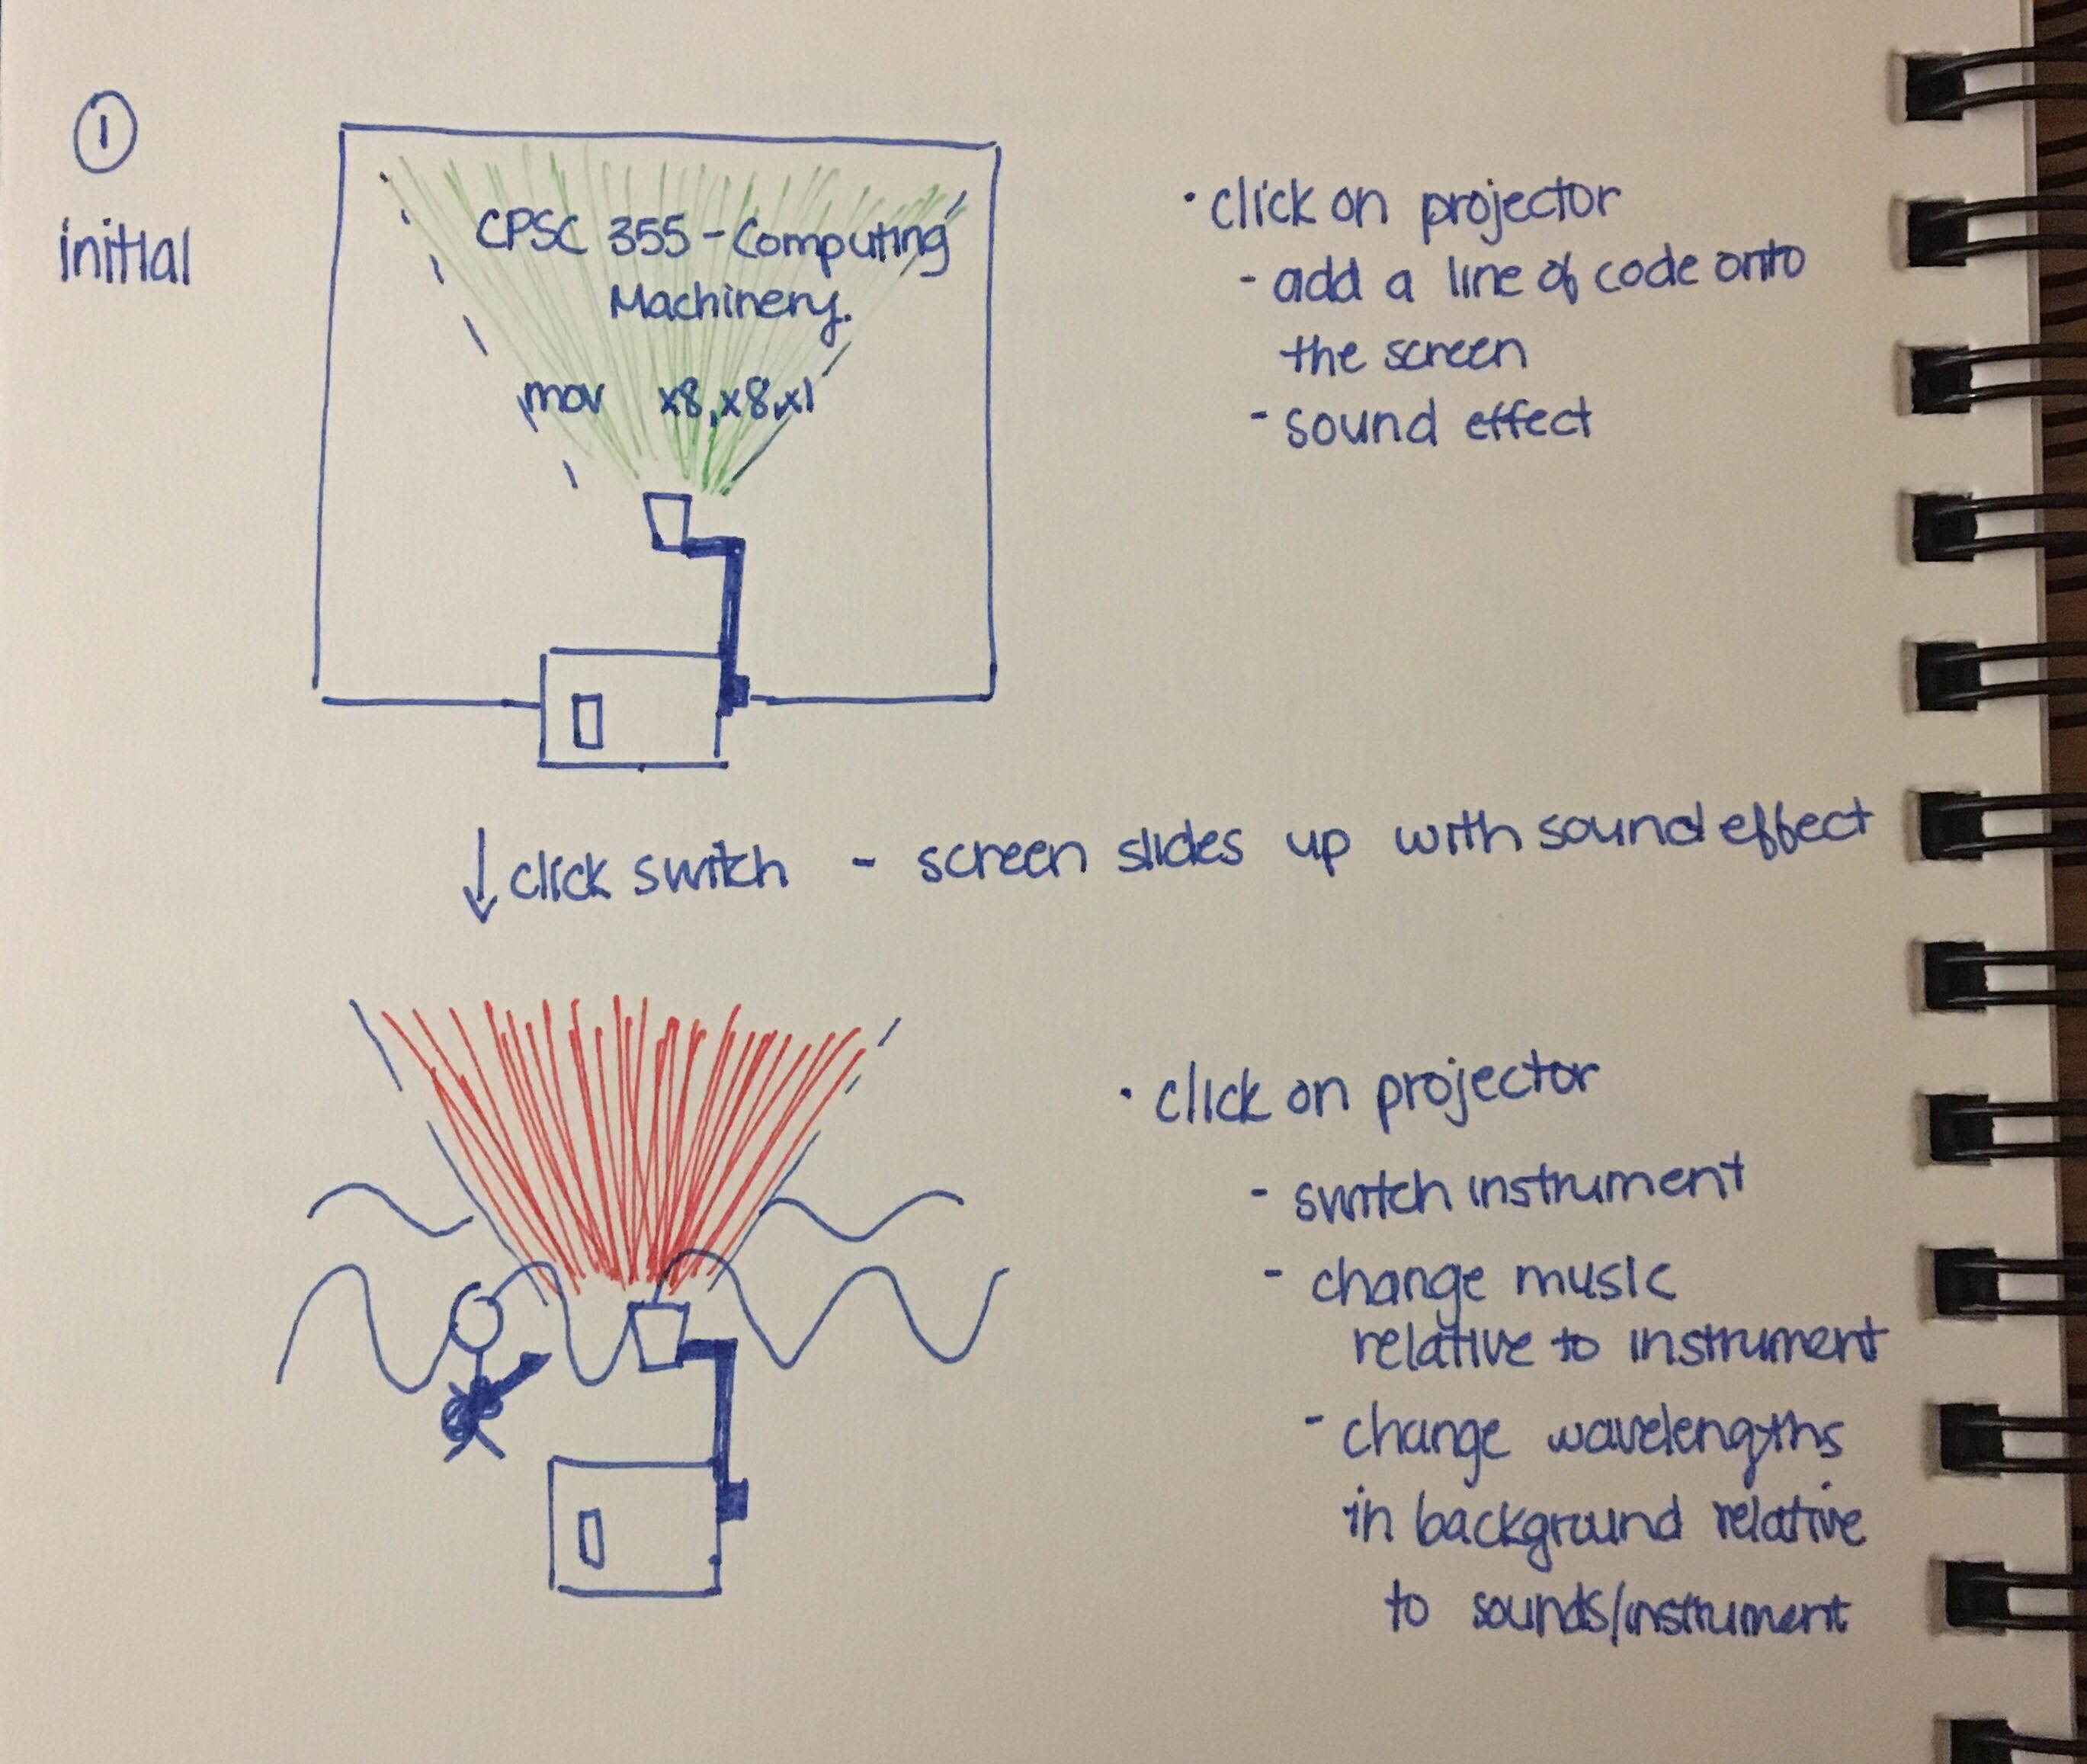 ①
initial
CPSC 355 - Computing
Machinery.
mov x8, x8, x1
• click on projector
- add a line of code onto
the screen
- sound effect
↓ click switch - screen slides up with sound effect
• click on projector
- switch instrument
- change music
relative to instrument
- change wavelengths
in background relative
to sounds/instrument